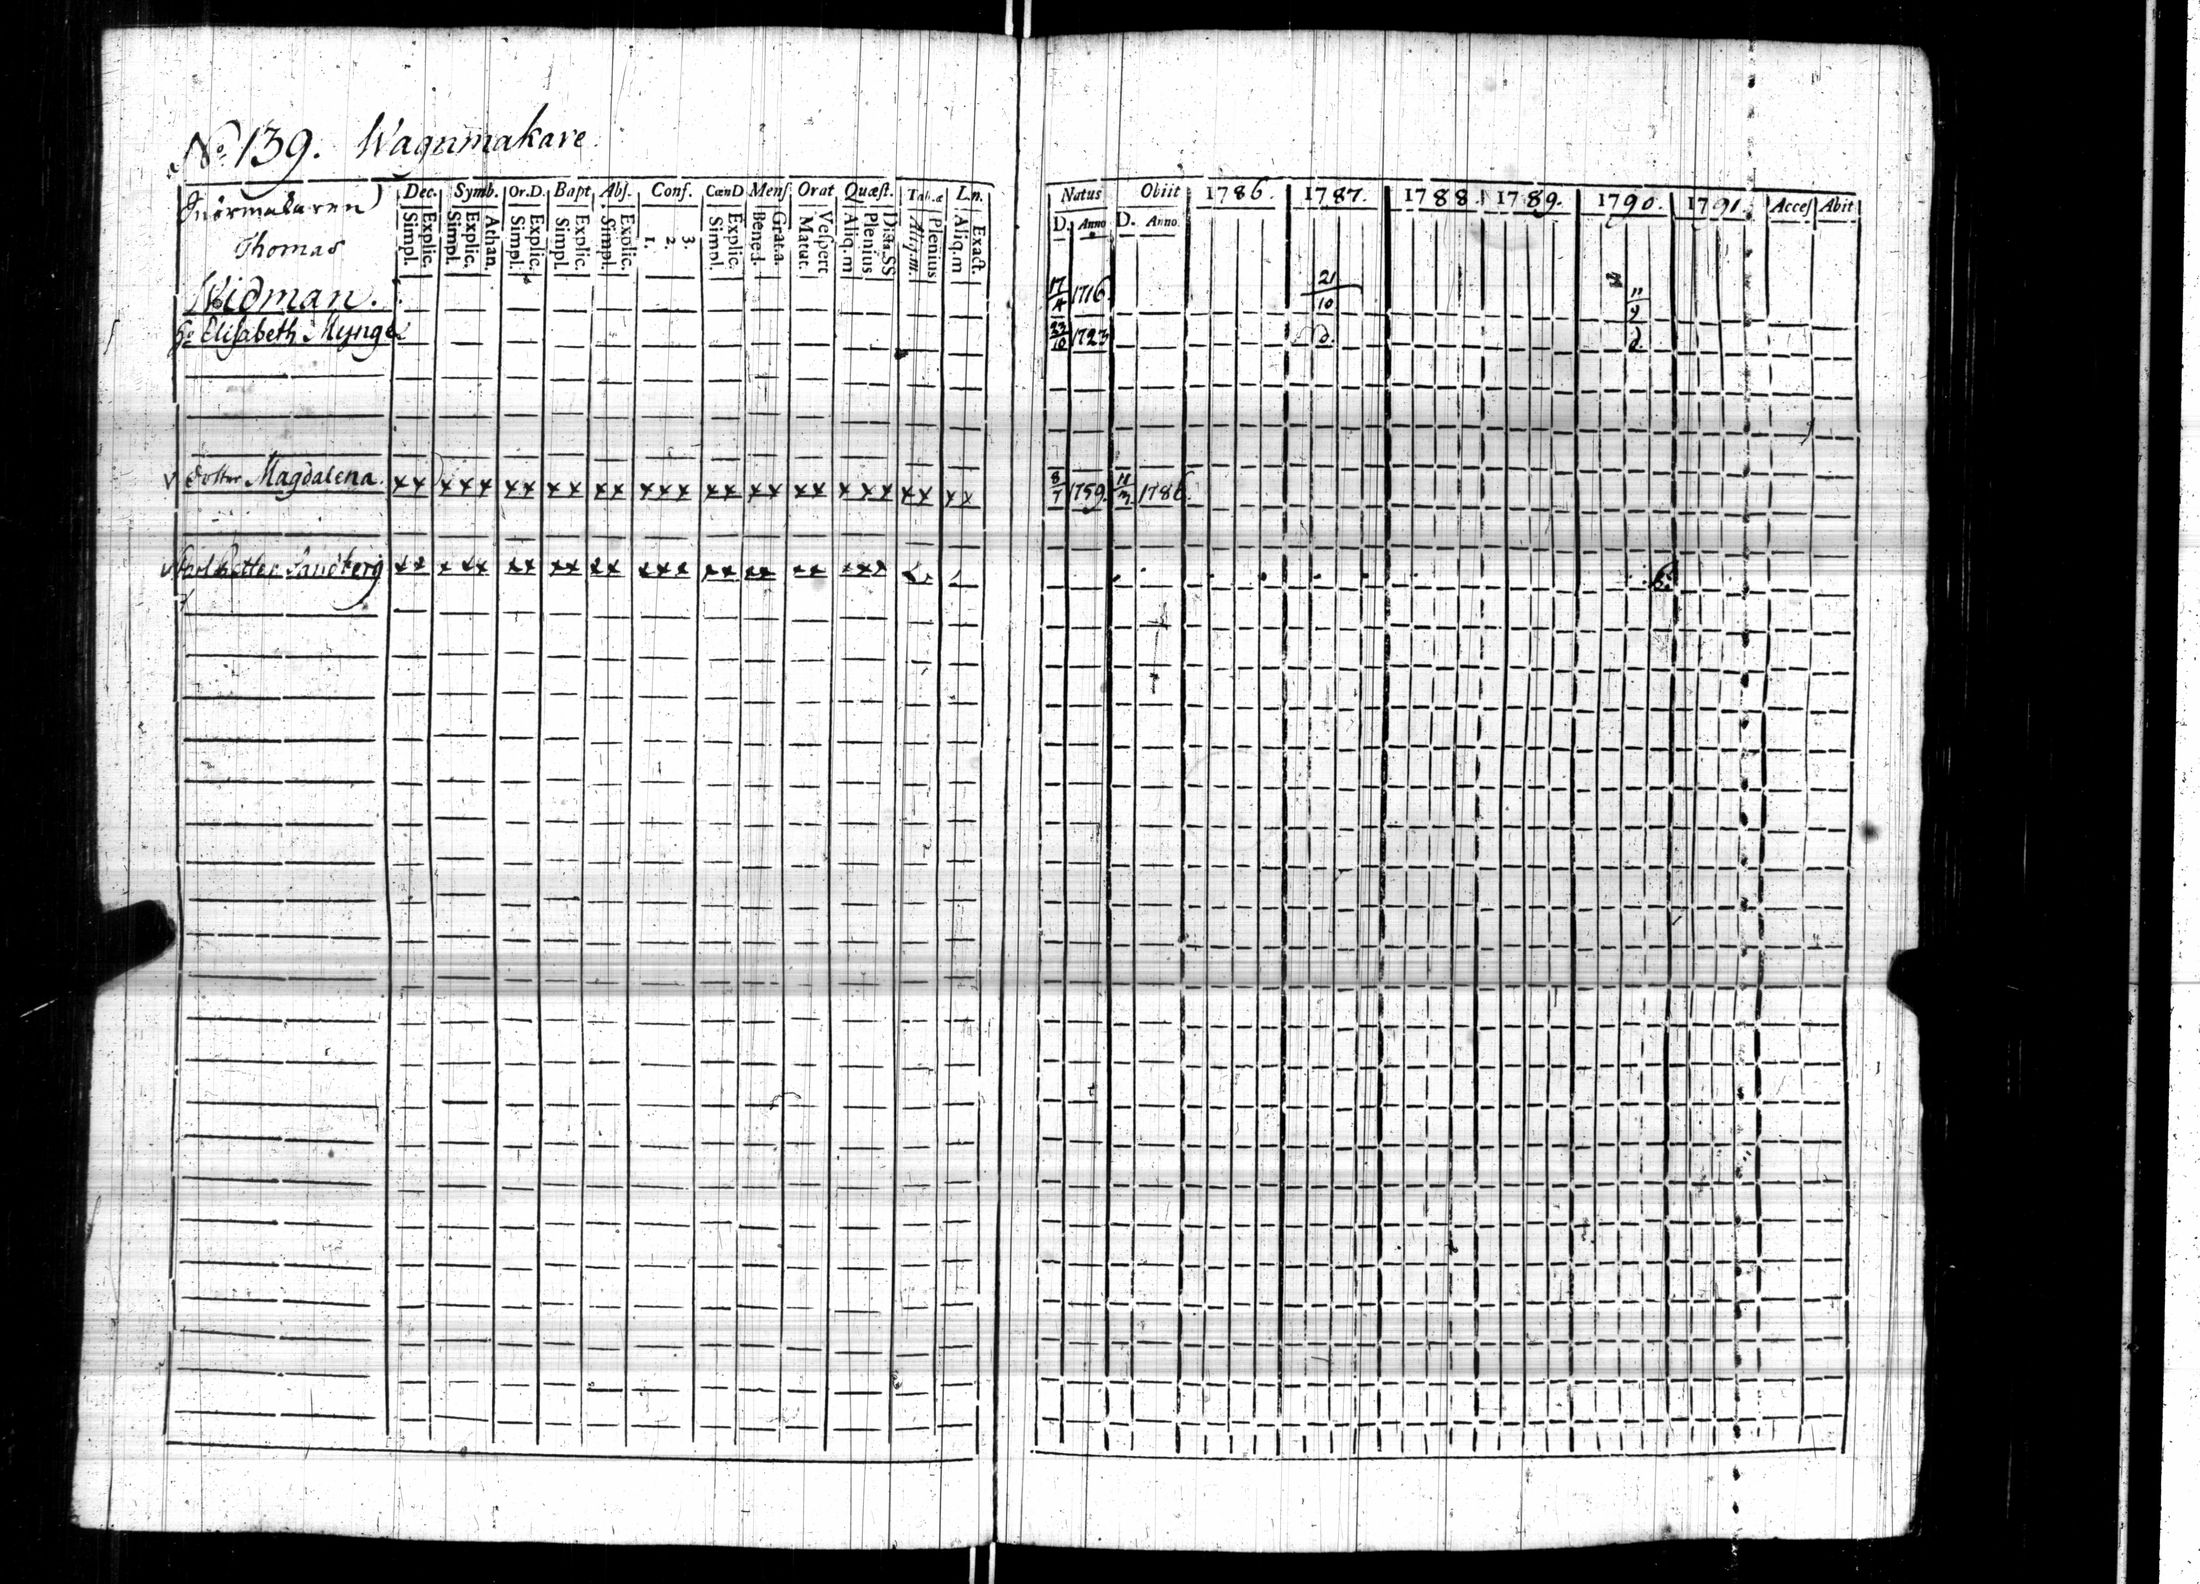 No 139. Wagnmakare
Dec. Symb. Or.D. Bapt Abſ. Conf. CœnD Menſ Orat Quæſt. Tab.æ L.n.
Simpl. Explic. Simpl. Explic. Athan. Simpl. Explic. Simpl. Explic. Simpl. Explic. 1. 2. 3. Simpl. Explic. Bened Grat.a. Matut. Veſpert Aliq.m Plenius Dicta.SS Aliq.m. Plenius Aliq.m Exact.
Thomas
Widman.
h: Eliſabeth Mynge
Dotter Magdalena. x x x x x x x x x x x x x x x x x x x x x x x x x x
Petter Sandberg
Natus Obiit 1786. 1787. 1788. 1789. 1790. 1791. Acceſ Abit
D. Anno D. Anno.
17/4 1716. 21/10 11/9
23/10 1723 d. d.
8/7 1759. 11/3 1786.